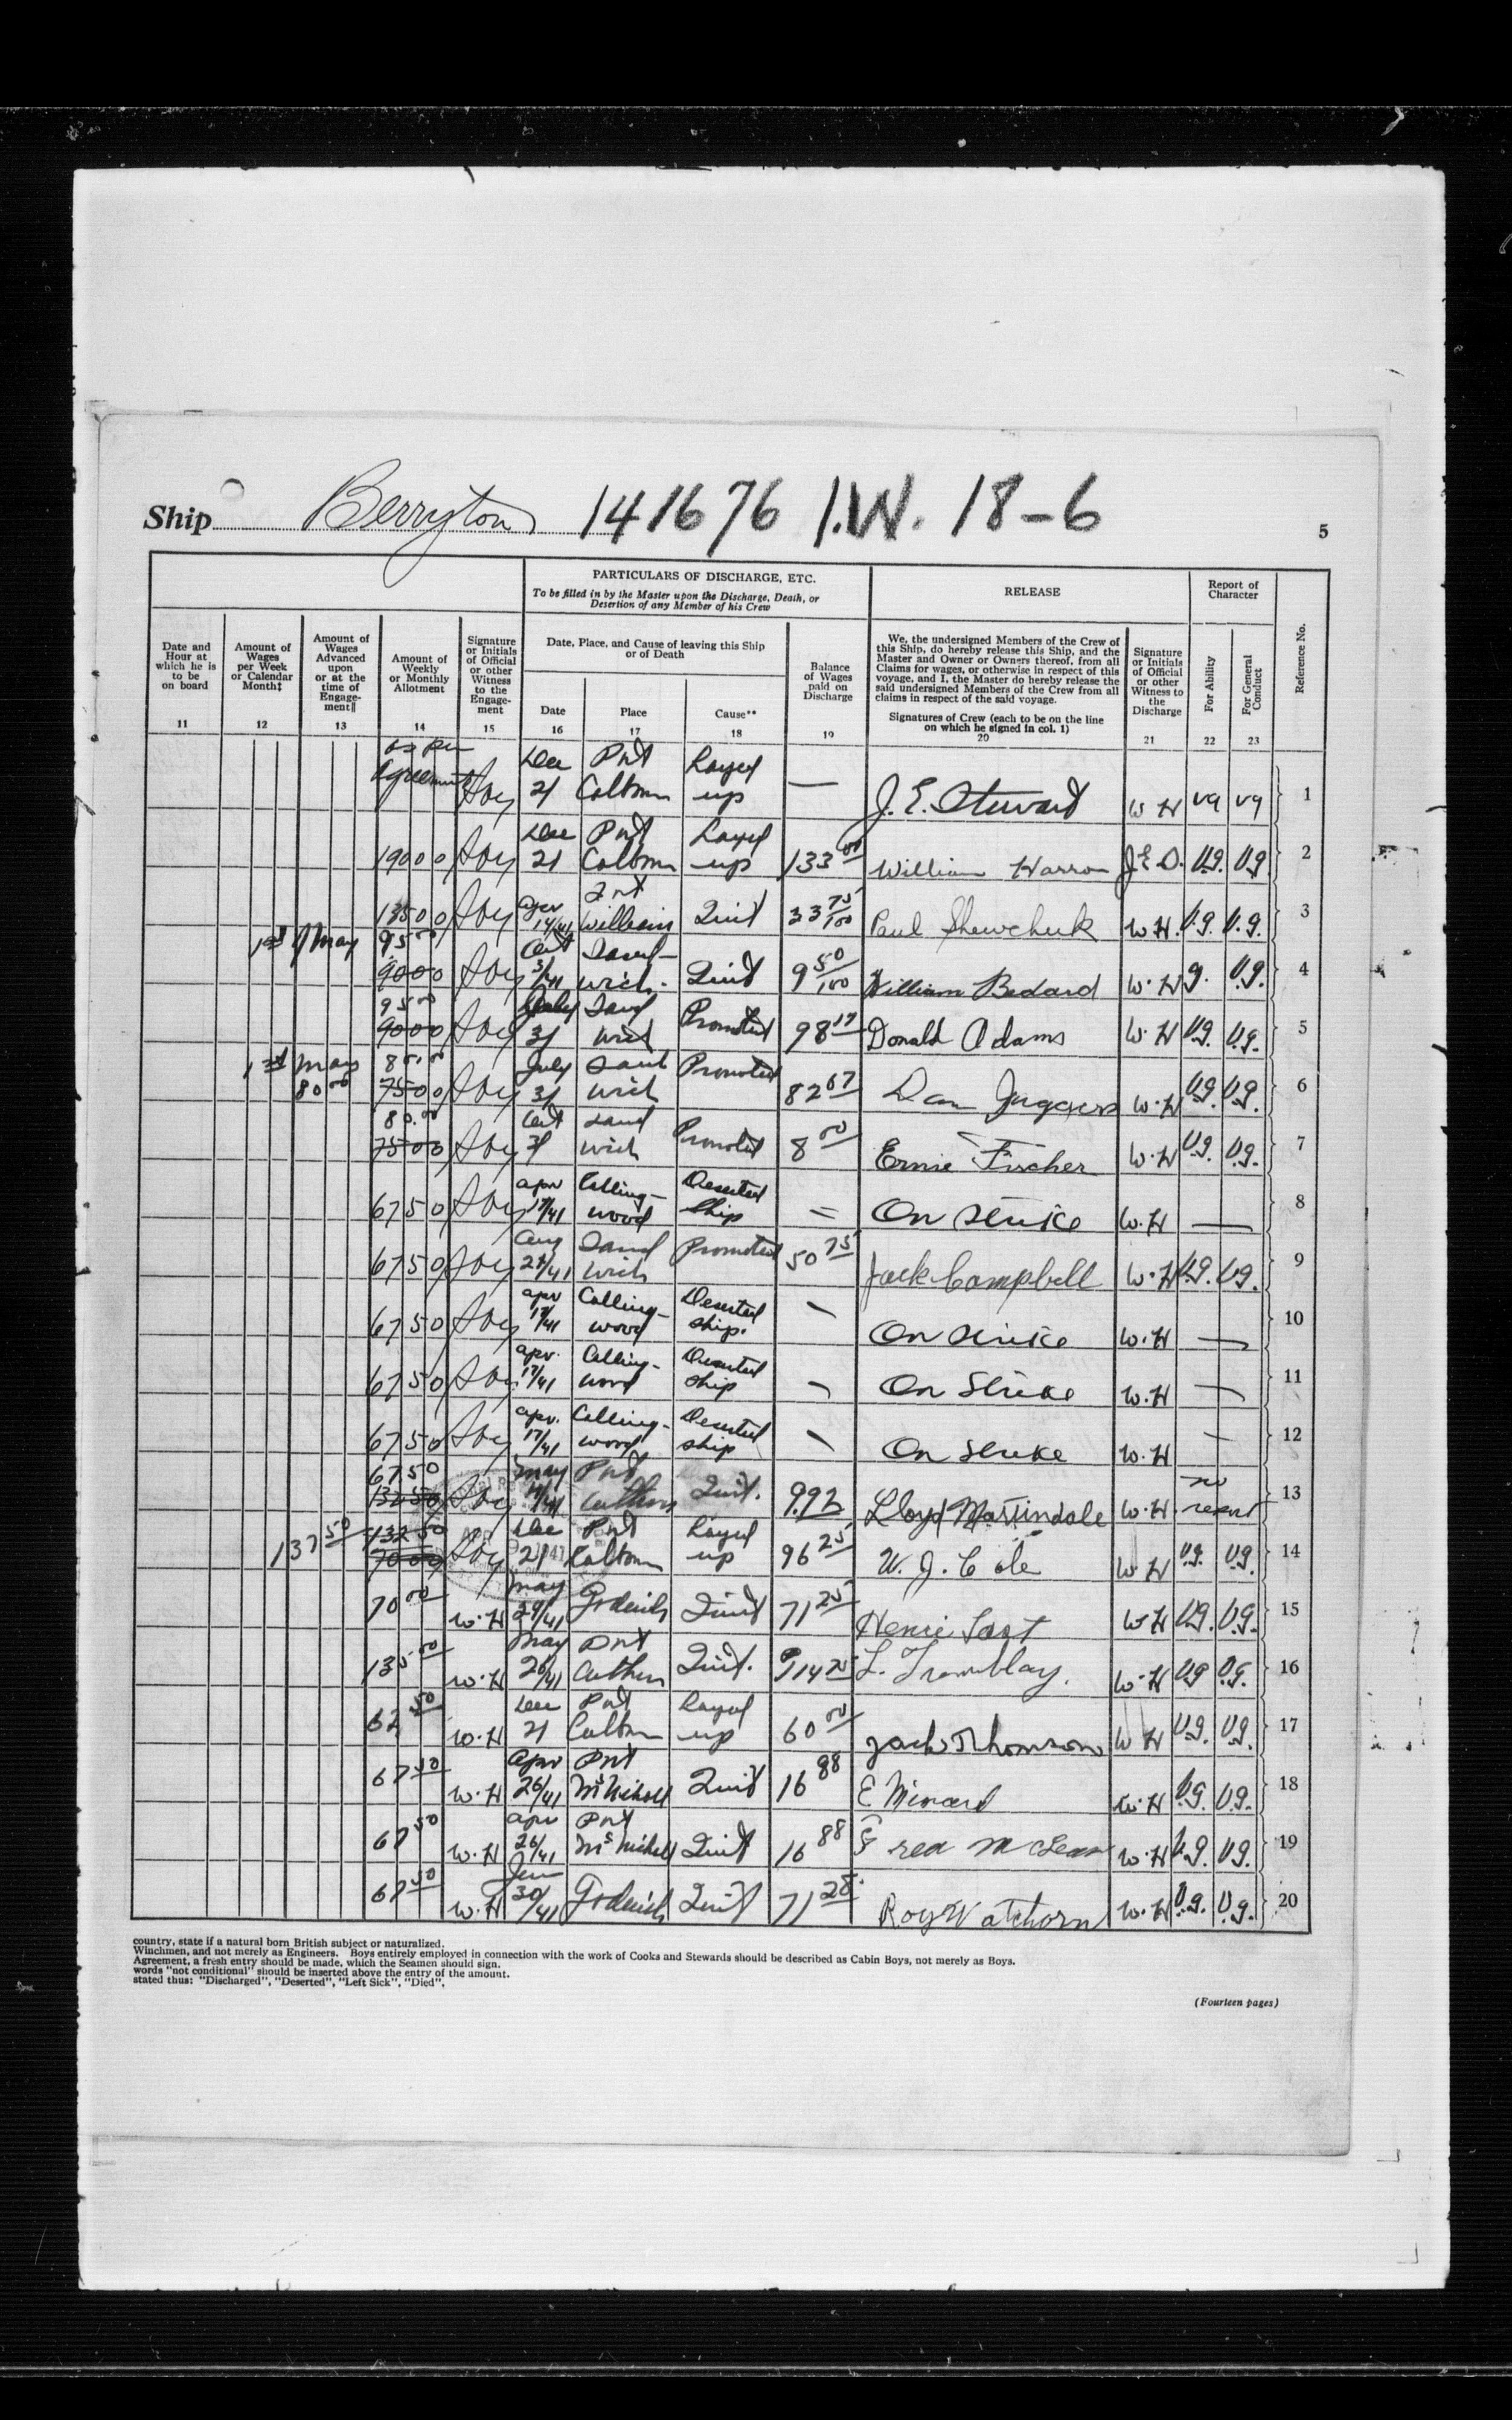 Ship Berryton 141676 I.W. 18-6
5
PARTICULARS OF DISCHARGE, ETC.
To be filled in by the Master upon the Discharge, Death, or
Desertion of any Member of his Crew
RELEASE
Report of
Character
Date and
Hour at
which he is
to be
on board
11
Amount of
Wages
per Week
or Calendar
Month‡
12
Amount of
Wages
Advanced
upon
or at the
time of
Engage-
ment‖
13
Amount of
Weekly
or Monthly
Allotment
14
Signature
or Initials
of Official
or other
Witness
to the
Engage-
ment
15
Date, Place, and Cause of leaving this Ship
or of Death
Date
16
Place
17
Cause**
18
Balance
of Wages
paid on
Discharge
19
We, the undersigned Members of the Crew of
this Ship, do hereby release this Ship, and the
Master and Owner or Owners thereof, from all
Claims for wages, or otherwise in respect of this
voyage, and I, the Master do hereby release the
said undersigned Members of the Crew from all
claims in respect of the said voyage.
Signatures of Crew (each to be on the line
on which he signed in col. 1)
20
Signature
or Initials
of Official
or other
Witness to
the
Discharge
21
For Ability
22
For General
Conduct
23
Reference No.
as per Dec Port Layed
Agreement 21 Colborne up — J. E. Stewart W H vg vg 1
Dec Port Layed
190 00 21 Colborne up 133 00 William Harron J.E.S. V.g. V.g 2
Fort
135 00 Apr 14/41 William Quit 33 75/100 Paul Shewchuk W.H. V.g. V.g. 3
1st of May 95 00 Oct Sand-
90 00 3/41 wich. Quit 9 50/100 William Bedard W.H g. V.g. 4
95 00 July Sand
90 00 31 wich Promoted 98 17 Donald Adams W.H V.g. V.g. 5
1st May 80 00 July Sand Promoted
80 00 75 00 31 wich 82 67 Dan Jaggers W.H V.g. V.g. 6
80.00 Oct Sand
75 00 wich Promoted 8 00 Ernie Fischer W.H V.g. V.g. 7
apr Colling- Deserted
67 50 17/41 wood Ship = On Strike W.H — 8
Aug Sand Promoted
67 50 27/41 wich 50 75 Jack Campbell W.H V.g. V.g. 9
apr Colling- Deserted
67 50 17/41 wood ship. — On Strike W.H — 10
apr. Colling- Deserted
67 50 17/41 wood ship — On Strike W.H — 11
apr. Colling- Deserted
67 50 17/41 wood ship — On Strike W.H — 12
67 50 May Port no
132 50 Quit. 9.92 Lloyd Martindale W.H report 13
137 50 132 50 Dec Port Layed
70 00 21 Colborne up 96 25 W. J. Cole W H V.g. V.g. 14
May
70 00 W.H 29/41 Goderich Quit 71 25 W H V.g. V.g. 15
May Port
135 00 W.H 26/41 Quit. L. Tremblay. W.H V g V.g. 16
Dec Port Layed
62 50 W.H 21 Colborne up 60 00 Jack Thomson W H V.g. V.g. 17
Apr Port
67 50 W.H 26/41 McNicholl Quit 16 88 E Minard W.H V.g. V.g. 18
apr Port
67 50 W.H 26/41 McNicholl Quit 16 88 Fred McLean W.H V.g. V.g. 19
Jun
67 50 W.H 30/41 Goderich Quit 71 25 Roy Watchorn W.H V.g. V.g. 20
country, state if a natural born British subject or naturalized.
Winchmen, and not merely as Engineers. Boys entirely employed in connection with the work of Cooks and Stewards should be described as Cabin Boys, not merely as Boys.
Agreement, a fresh entry should be made, which the Seamen should sign.
words "not conditional" should be inserted above the entry of the amount.
stated thus: "Discharged", "Deserted", "Left Sick", "Died".
(Fourteen pages)